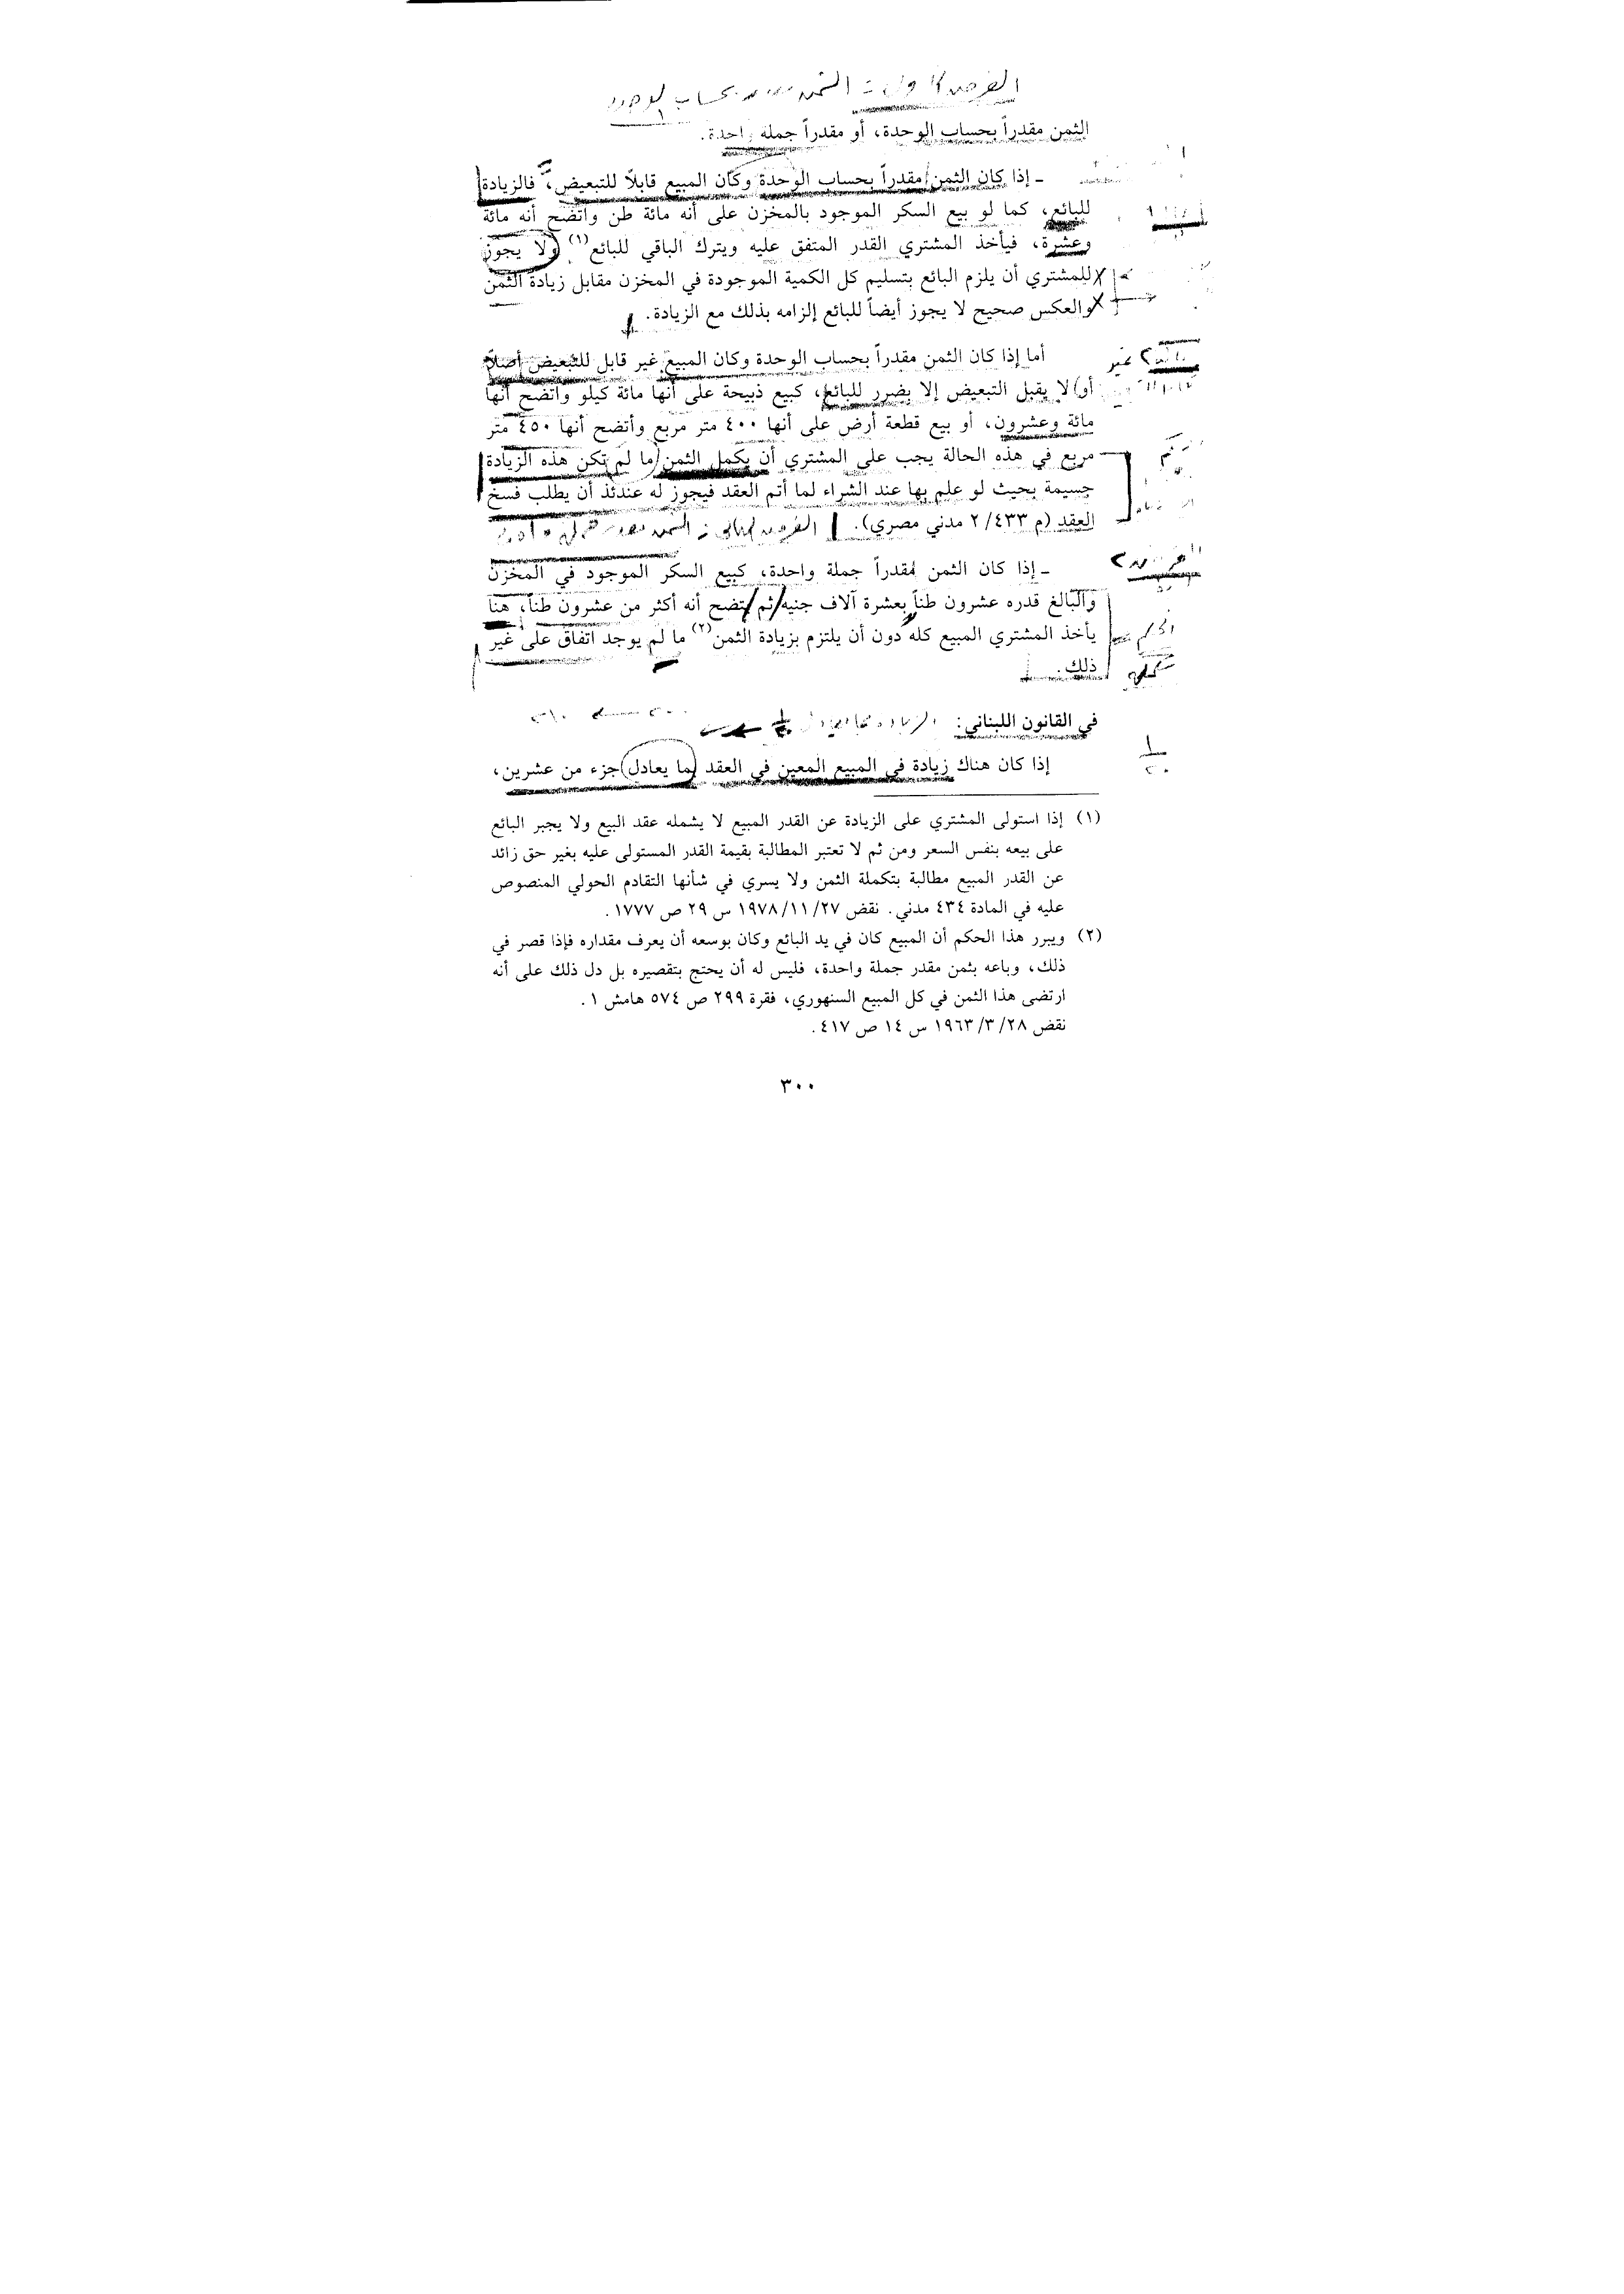 الثمن مقدراً بحساب الوحدة، أو مقدراً جملة واحدة.
ـ إذا كان الثمن مقدراً بحساب الوحدة وكان المبيع قابلاً للتبعيض، فالزيادة
للبائع، كما لو بيع السكر الموجود بالمخزن على أنه مائة طن واتضح أنه مائة
وعشرة، فيأخذ المشتري القدر المتفق عليه ويترك الباقي للبائع(١) ولا يجوز
للمشتري أن يلزم البائع بتسليم كل الكمية الموجودة في المخزن مقابل زيادة الثمن
والعكس صحيح لا يجوز أيضاً للبائع إلزامه بذلك مع الزيادة.
أما إذا كان الثمن مقدراً بحساب الوحدة وكان المبيع غير قابل للتبعيض أصلاً
أو لا يقبل التبعيض إلا بضرر للبائع، كبيع ذبيحة على أنها مائة كيلو واتضح أنها
مائة وعشرون، أو بيع قطعة أرض على أنها ٤٠٠ متر مربع وأتضح أنها ٤٥٠ متر
مربع في هذه الحالة يجب على المشتري أن يكمل الثمن ما لم تكن هذه الزيادة
جسيمة بحيث لو علم بها عند الشراء لما أتم العقد فيجوز له عندئذ أن يطلب فسخ
العقد (م ٤٣٣/ ٢ مدني مصري).
ـ إذا كان الثمن مقدراً جملة واحدة، كبيع السكر الموجود في المخزن
والبالغ قدره عشرون طناً بعشرة آلاف جنيه ثم يتضح أنه أكثر من عشرون طناً، هنا
يأخذ المشتري المبيع كله دون أن يلتزم بزيادة الثمن(٢) ما لم يوجد اتفاق على غير
ذلك.
في القانون اللبناني:
إذا كان هناك زيادة في المبيع المعين في العقد بما يعادل جزء من عشرين،
(١) إذا استولى المشتري على الزيادة عن القدر المبيع لا يشمله عقد البيع ولا يجبر البائع
على بيعه بنفس السعر ومن ثم لا تعتبر المطالبة بقيمة القدر المستولى عليه بغير حق زائد
عن القدر المبيع مطالبة بتكملة الثمن ولا يسري في شأنها التقادم الحولي المنصوص
عليه في المادة ٤٣٤ مدني. نقض ٢٧/ ١١/ ١٩٧٨ س ٢٩ ص ١٧٧٧.
(٢) ويبرر هذا الحكم أن المبيع كان في يد البائع وكان بوسعه أن يعرف مقداره فإذا قصر في
ذلك، وباعه بثمن مقدر جملة واحدة، فليس له أن يحتج بتقصيره بل دل ذلك على أنه
ارتضى هذا الثمن في كل المبيع السنهوري، فقرة ٢٩٩ ص ٥٧٤ هامش ١.
نقض ٢٨/ ٣/ ١٩٦٣ س ١٤ ص ٤١٧.
٣٠٠